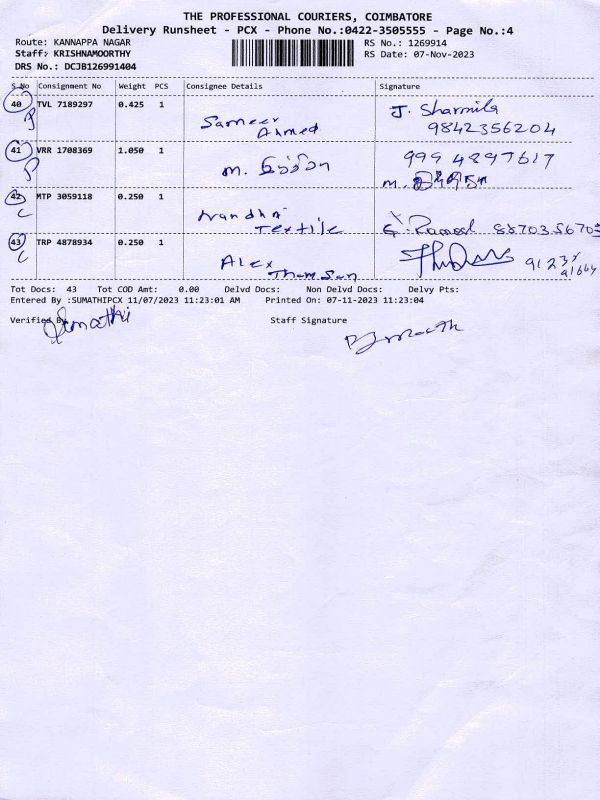 THE PROFESSIONAL COURIERS, COIMBATORE
Delivery Runsheet - PCX - Phone No.:0422-3505555 - Page No.:4
Route: KANNAPPA NAGAR
Staff: KRISHNAMOORTHY
DRS No.: DCJB126991404
RS No.: 1269914
RS Date: 07-Nov-2023
S No Consignment No Weight PCS Consignee Details Signature
40 TVL 7189297 0.425 1 Sameer Ahmed J. Sharmila
9842356204
41 VRR 1708369 1.050 1 m. 999 4897617
m.
42 MTP 3059118 0.250 1 Nandhni Textile G. Ramesh
43 TRP 4878934 0.250 1 Alex Thomson
Tot Docs: 43 Tot COD Amt: 0.00 Delvd Docs: Non Delvd Docs: Delvy Pts:
Entered By :SUMATHIPCX 11/07/2023 11:23:01 AM Printed On: 07-11-2023 11:23:04
Verified By Staff Signature